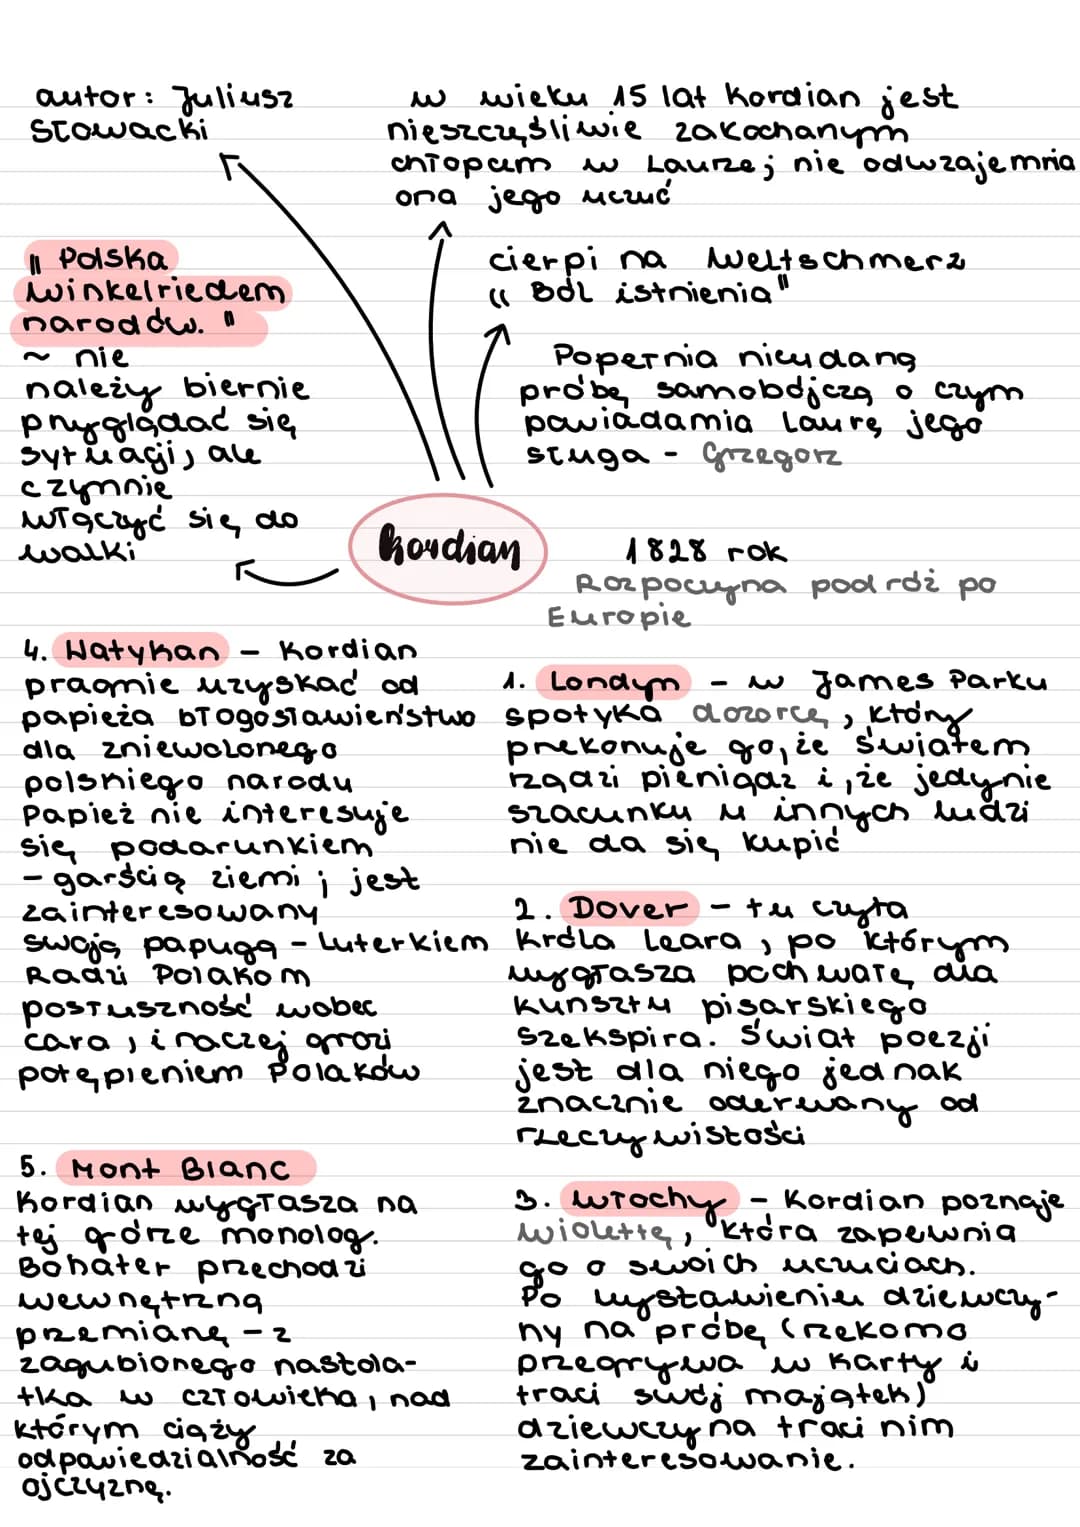 autor: Juliusz
Słowacki
w wieku 15 lat Kordian jest
nieszczęśliwie zakochanym
chłopcem w Laurze; nie odwzajemnia
ona jego uczuć
cierpi na Weltschmerz
"Ból istnienia"
Popełnia nieudaną
próbę samobójczą o czym
powiadamia Laurę jego
sługa - Grzegorz
"Polska
Winkelriedem
narodów."
~ nie
należy biernie
przyglądać się
sytuacji, ale
czynnie
włączyć się do
walki
Kordian
1828 rok
Rozpoczyna podróż po
Europie
1. Londyn - w James Parku
spotyka dozorcę, który
przekonuje go, że światem
rządzi pieniądz i, że jedynie
szacunku u innych ludzi
nie da się kupić
2. Dover - tu czyta
Króla Leara, po którym
wygłasza pochwałę dla
kunsztu pisarskiego
Szekspira. Świat poezji
jest dla niego jednak
znacznie oderwany od
rzeczywistości
3. Włochy - Kordian poznaje
Wiolettę, która zapewnia
go o swoich uczuciach.
Po wystawieniu dziewczy-
ny na próbę (rzekomo
przegrywa w karty i
traci swój majątek)
dziewczyna traci nim
zainteresowanie.
4. Watykan - Kordian
pragnie uzyskać od
papieża błogosławieństwo
dla zniewolonego
polskiego narodu
Papież nie interesuje
się podarunkiem
- garścią ziemi; jest
zainteresowany
swoją papugą - Luterkiem
Radzi Polakom
posłuszność wobec
cara, inaczej grozi
potępieniem Polaków
5. Mont Blanc
Kordian wygłasza na
tej górze monolog.
Bohater przechodzi
wewnętrzną
przemianę - z
zagubionego nastola-
tka w człowieka, nad
którym ciąży
odpowiedzialność za
ojczyznę.